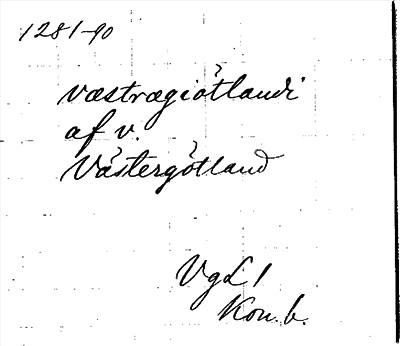 1281-90
væstrægiötlandi
af v.
Västergötland
VgL 1
Kon. b.